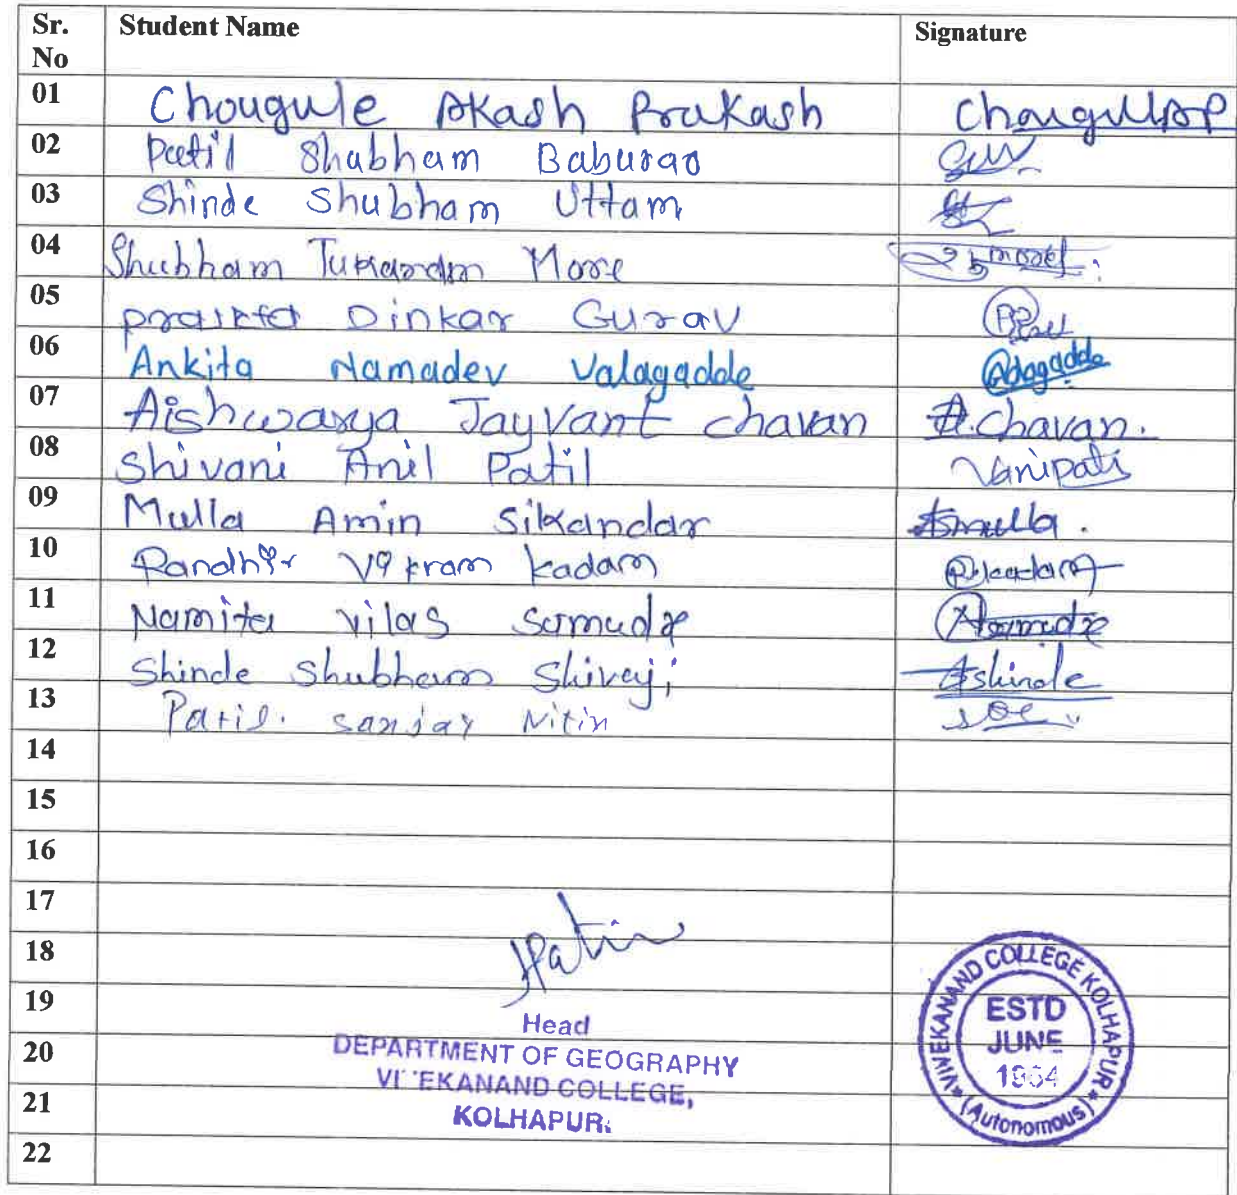 Sr. No Student Name Signature
01 Chougule Akash Prakash ChouguleAP
02 Patil Shubham Baburao
03 Shinde Shubham Uttam
04 Shubham Tukaram More more
05 Prajkta Dinkar Gurav
06 Ankita Namadev Valagadde
07 Aishwarya Jayvant chavan A.chavan.
08 Shivani Anil Patil Vanipati
09 Mulla Amin Sikandar Asmulla.
10 Randhir Vikram kadam R.kadam
11 Namita vilas Samudre
12 Shinde Shubham Shivaji Ashinde
13 Patil. sanjay Nitin
14
15
16
17
18
19
20
21
22
Head
DEPARTMENT OF GEOGRAPHY
VI EKANAND COLLEGE,
KOLHAPUR.
VIVEKANAND COLLEGE KOLHAPUR
(Autonomous)
ESTD
JUNE
1964